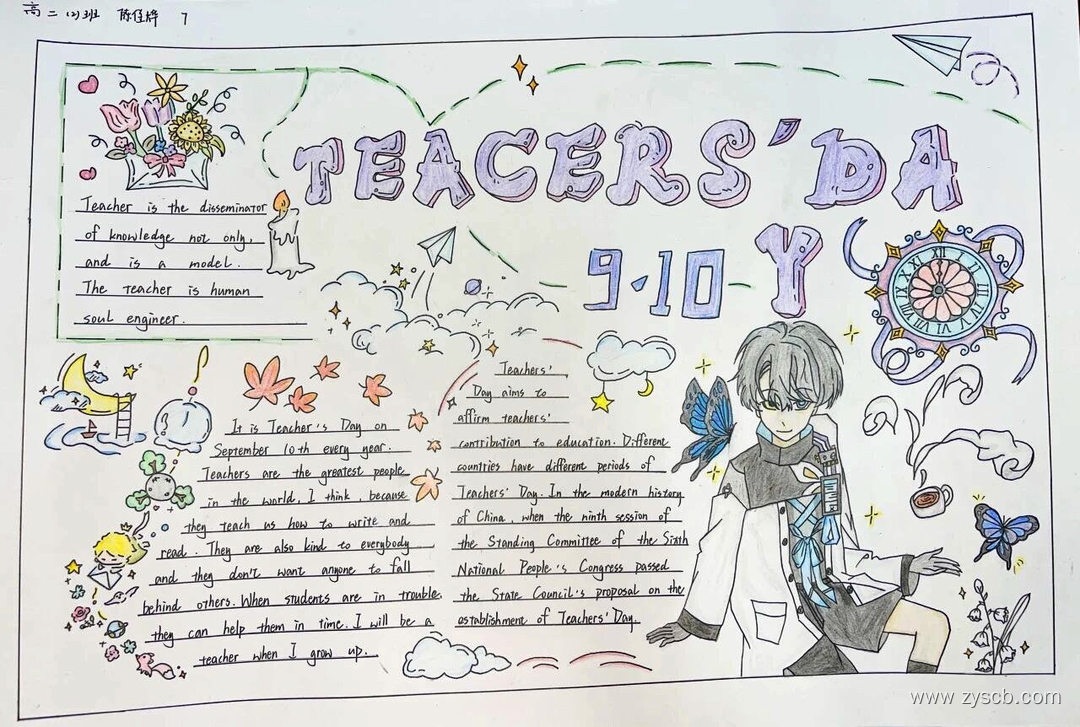 高二(2)班 陈佳婷 7
TEACERS' DA
Y
9·10
Teacher is the disseminator
of knowledge not only,
and is a model.
The teacher is human
soul engineer.
It is Teacher's Day on
September 10th every year.
Teachers are the greatest people
in the world, I think, because
they teach us how to write and
read. They are also kind to everybody
and they don't want anyone to fall
behind others. When students are in trouble
they can help them in time. I will be a
teacher when I grow up.
Teachers'
Day aims to
affirm teachers'
contribution to education. Different
countries have different periods of
Teachers' Day. In the modern history
of China, when the ninth session of
the Standing Committee of the Sixth
National People's Congress passed
the State Council's proposal on the
establishment of Teachers' Day.
www.zyscb.com